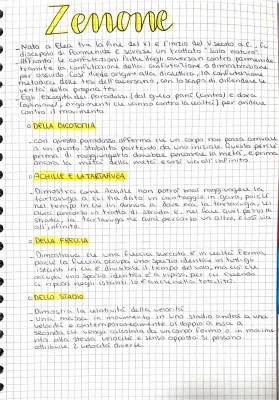 Zenone
- Nato a Elea tra la fine del VI e l'inizio del V secolo a.C., fu
discepolo di Parmenide e scrisse un trattato "Sulla natura".
- Affrontò le confutazioni fatte dagli avversari contro Parmenide
tramite la confutazione della confutazione o dimostrazione
per assurdo. Così diede origine alla dialettica, la confutazione
metodica delle tesi dell'avversario, con lo scopo di difendere la
verità della propria tesi
- Egli escogitò dei paradossi (dal greco parà (contro) e doxa
(opinione), argomenti che vanno contro la realtà) per andare
contro il movimento
DELLA DICOTOMIA
- con questo paradosso afferma che un corpo non possa arrivare
a un punto stabilito partendo da uno iniziale. Questo perché
prima di raggiungerlo dovrebbe percorrere la metà, e prima
ancora la metà della metà e così via all'infinito.
ACHILLE E LA TARTARUGA
- Dimostra come Achille non potrà mai raggiungere la
tartaruga a cui ha dato un vantaggio in gara, poiché
nel tempo in cui lui arriva a dove era la tartaruga, lei
avrà percorso un tratto di strada e, nel fare quel pezzo di
strada, la tartaruga ne avrà percorso un altro, e così via
all'infinito.
DELLA FRECCIA
- Dimostrava che una freccia scoccata è in realtà ferma,
poiché la freccia occupa uno spazio identico in tutti gli
istanti in cui è divisibile il tempo del volo, ma ciò che
occupa uno spazio identico è a riposo, per cui essendo
a riposo negli istanti lo è anche nella totalità.
DELLO STADIO
- Dimostra la relatività della velocità
- Una massa in movimento in uno stadio andrà a una
velocità e contemporaneamente al doppio di essa a
seconda che venga calcolata da un corpo fermo o in movimento
alla stessa velocità e senso opposto si possono
attribuire 2 velocità diverse.